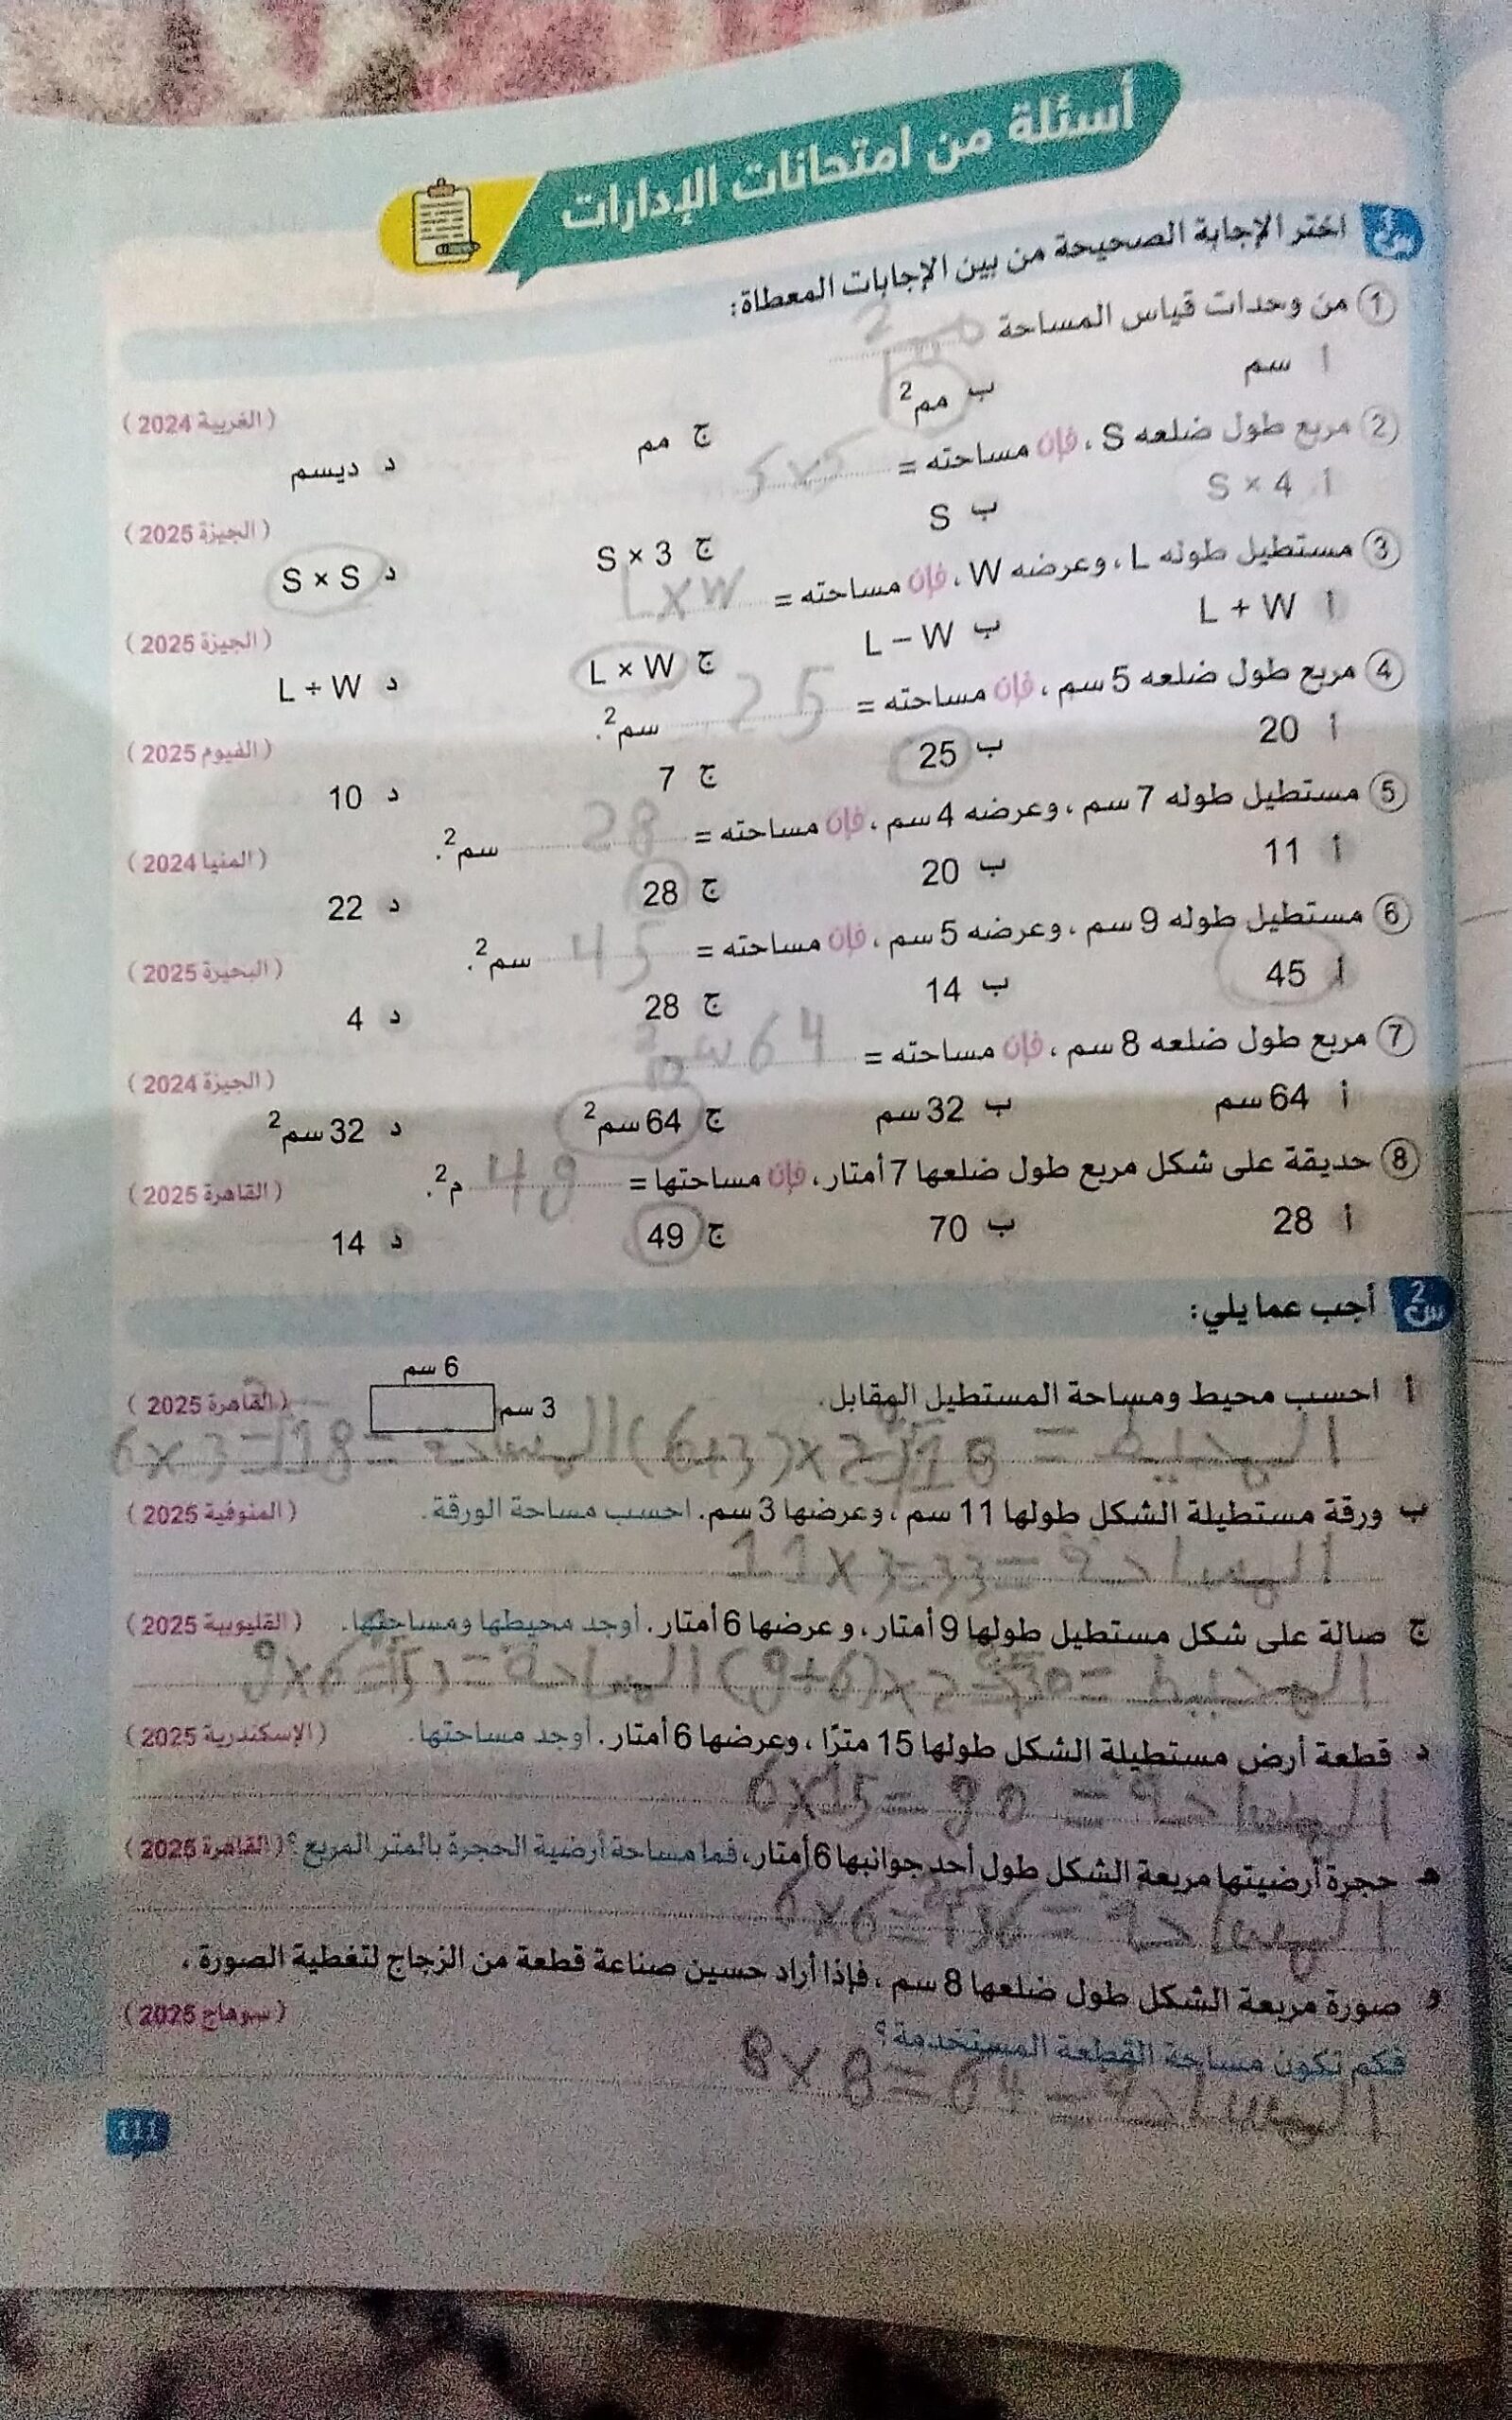 أسئلة من امتحانات الإدارات
س1 اختر الإجابة الصحيحة من بين الإجابات المعطاة:
1 من وحدات قياس المساحة مم2 (الغربية 2024)
أ سم ب مم2 ج مم د ديسم
2 مربع طول ضلعه S ، فإن مساحته = S×S (الجيزة 2025)
أ S × 4 ب S ج S × 3 د S × S
3 مستطيل طوله L ، وعرضه W ، فإن مساحته = L×W (الجيزة 2025)
أ L + W ب L – W ج L × W د L ÷ W
4 مربع طول ضلعه 5 سم ، فإن مساحته = 25 سم2. (الفيوم 2025)
أ 20 ب 25 ج 7 د 10
5 مستطيل طوله 7 سم ، وعرضه 4 سم ، فإن مساحته = 28 سم2. (المنيا 2024)
أ 11 ب 20 ج 28 د 22
6 مستطيل طوله 9 سم ، وعرضه 5 سم ، فإن مساحته = 45 سم2. (البحيرة 2025)
أ 45 ب 14 ج 28 د 4
7 مربع طول ضلعه 8 سم ، فإن مساحته = 64 سم2 (الجيزة 2024)
أ 64 سم ب 32 سم ج 64 سم2 د 32 سم2
8 حديقة على شكل مربع طول ضلعها 7 أمتار، فإن مساحتها = 49 م2. (القاهرة 2025)
أ 28 ب 70 ج 49 د 14
س2 أجب عما يلي:
أ احسب محيط ومساحة المستطيل المقابل. (القاهرة 2025)
6 سم
3 سم
المحيط = 18 = 2×(6+3) المساحة = 18 = 6×3
ب ورقة مستطيلة الشكل طولها 11 سم ، وعرضها 3 سم. احسب مساحة الورقة. (المنوفية 2025)
المساحة = 33 = 11×3
ج صالة على شكل مستطيل طولها 9 أمتار، وعرضها 6 أمتار. أوجد محيطها ومساحتها. (القليوبية 2025)
المحيط = 30 = 2×(9+6) المساحة = 9×6
د قطعة أرض مستطيلة الشكل طولها 15 مترًا ، وعرضها 6 أمتار. أوجد مساحتها. (الإسكندرية 2025)
المساحة = 90 = 6×15
هـ حجرة أرضيتها مربعة الشكل طول أحد جوانبها 6 أمتار، فما مساحة أرضية الحجرة بالمتر المربع؟ (القاهرة 2025)
المساحة = 36 = 6×6
و صورة مربعة الشكل طول ضلعها 8 سم ، فإذا أراد حسين صناعة قطعة من الزجاج لتغطية الصورة ،
فكم تكون مساحة القطعة المستخدمة؟ (سوهاج 2025)
المساحة = 64 = 8×8
111